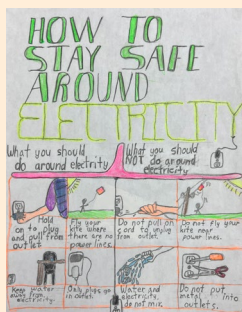 HOW TO
STAY SAFE
AROUND
ELECTRICITY
What you should
do around electrity
What you should
NOT do around
electricity
Hold
on to plug
and pull from
outlet
Fly your
kite where
there are no
power lines.
Do not pull on
cord to unplug
from outlet.
Do not fly your
kite near
power lines.
Keep water
away from
electricity.
Only plugs go
in outlet.
Water and
electricity
do not mix.
Do not put
metal into
outlets.